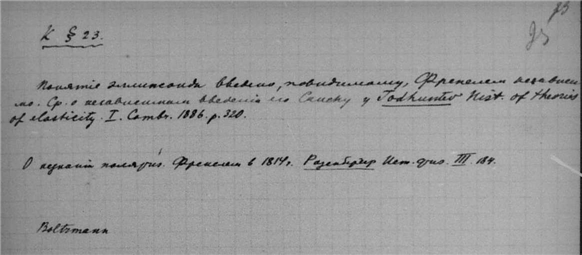 23
К § 23.
Понятіе эллипсоида введено, повидимому, Френелем независи-
мо. Ср. о независимом введеніи его Cauchy у Todhunter Hist. of theories
of elasticity. I. Cambr. 1886. p. 320.
О Френелем в 1814 г. Розенбергер Ист. физ. III. 184.
Boltzmann